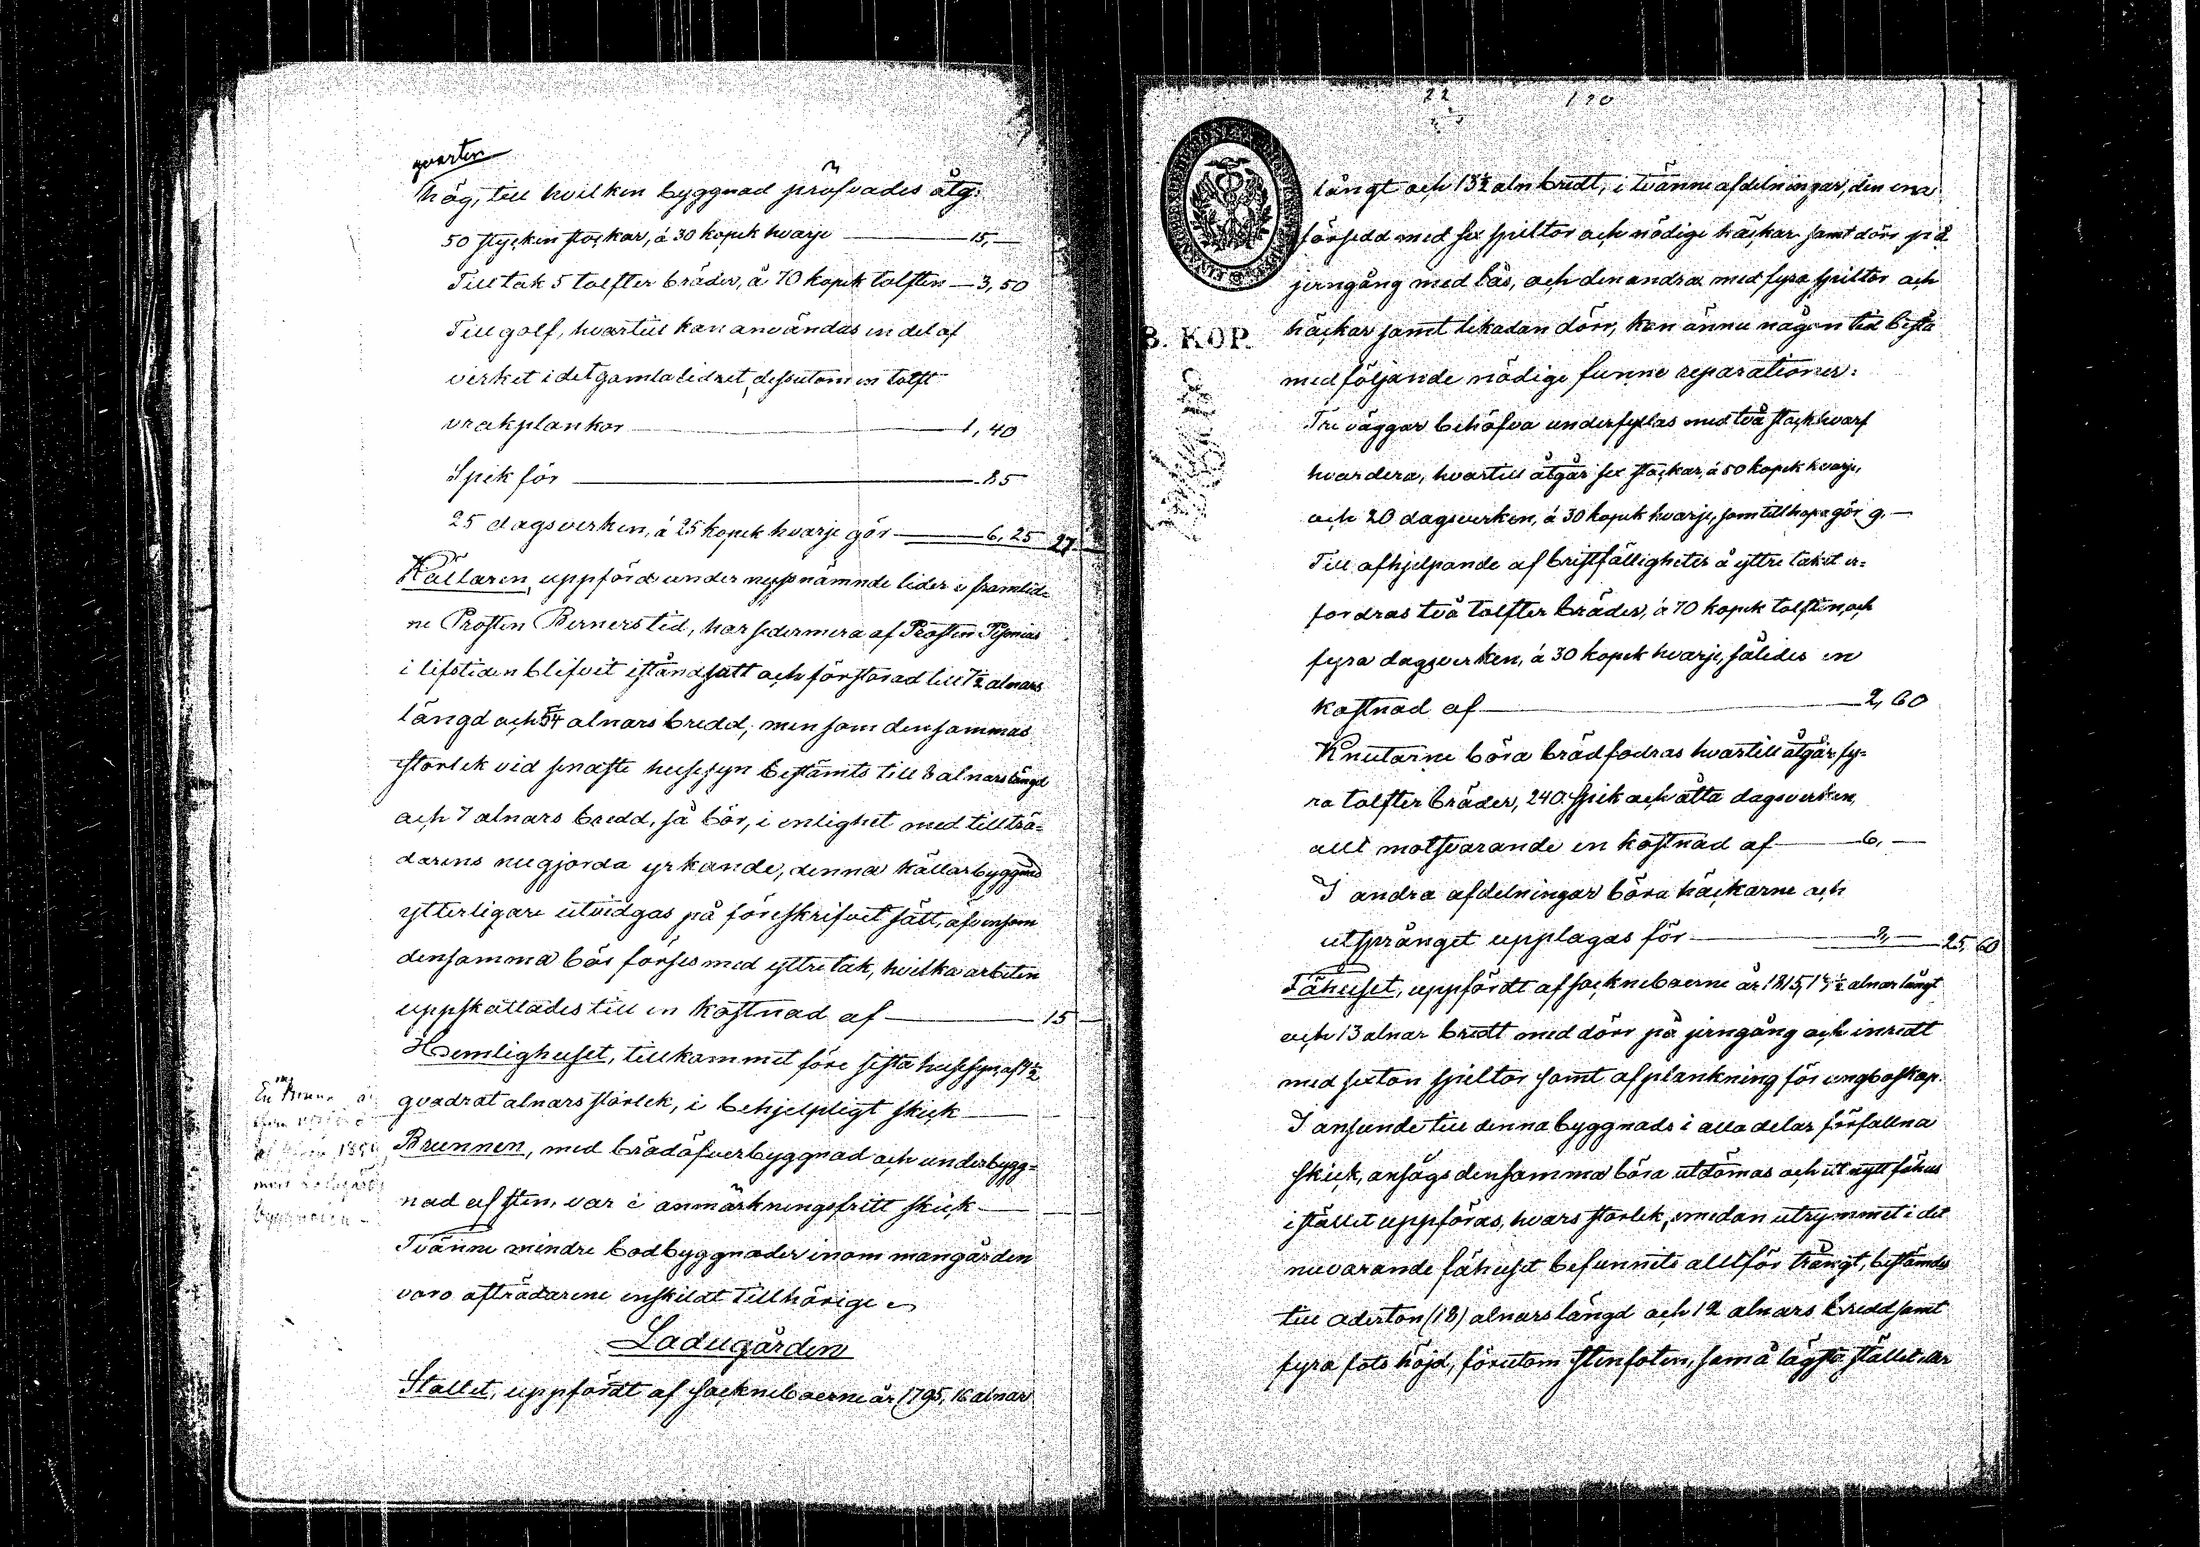 qvarter
hög, till hvilken byggnad pröfvades åtg:
50 stycken stockar, á 30 kopek hvarje 15,—
Till tak 5 tolfter bräder, á 70 kopek tolften — 3, 50
Till golf, hvartill kan användas en del af
virket i det gamla lidret, dessutom en tolft
vrakplankor 1, 40
Spik för 85
25 dagsverken, á 25 kopek hvarje gör 6, 25 27
Källaren, uppförd under nyssnämnde lider i framlid-
ne Prosten Berners tid, har sedermera af Prosten
i lifstiden blifvit iståndsatt och förstorad till 7½ alnars
längd och 5¼ alnars bredd; men som densammas
storlek vid senaste husesyn bestämts till 8 alnars längd
och 7 alnars bredd, så bör, i enlighet med tillträ-
darens nu gjorda yrkande, denna källarbyggnad
ytterligare utvidgas på föreskrifvet sätt, äfvensom
densamma bör förses med yttre tak, hvilka arbeten
uppskattades till en kostnad af 15 —
Hemlighuset, tillkommet före sista husesyn, af 1½
qvadrat alnars storlek, i behjelpligt skick
Brunnen, med brädöfverbyggnad och underbygg-
nad af sten, var i anmärkningsfritt skick
Tvänne mindre bodbyggnader inom mangården
voro afträdarene enskildt tillhörige
Ladugården
Stallet, uppfördt af sockneboerne år 1795, 16 alnar
En
1890
byggnaden
22 190
8. KOP.
långt och 13½ aln bredt, i tvänne afdelningar, den ena
försedd med sex spiltor och nödige häckar samt dörr på
jerngång med lås, och den andra med fyra spiltor och
häckar samt likadan dörr, kan ännu någon tid bestå
med följande nödige funne reparationer:
Tre väggar behöfva underfyllas med två stockhvarf
hvardera, hvartill åtgår sex stockar, á 50 kopek hvarje,
och 20 dagsverken, á 30 kopek hvarje, som tillhopa gör 9. —
Till afhjelpande af bristfälligheter å yttre taket er-
fordras två tolfter bräder, á 70 kopek tolften, och
fyra dagsverken, á 30 kopek hvarje, således en
kostnad af 2, 60
Knutarne böra brädfodras hvartill åtgår fy-
ra tolfter bräder, 240 spik och åtta dagsverken,
allt motsvarande en kostnad af 6, —
I andra afdelningar böra häckarne och
utsprånget upplagas för 8, — 25, 60
Fähuset, uppfördt af sockneboerne år 1815, alnar långt
och 13 alnar bredt med dörr på jerngång och inredt
med sexton spiltor samt afplankning för ungboskap.
I anseende till denna byggnads i alla delar förfallna
skick, ansågs densamma böra utdömas och ett nytt fähus
i stället uppföras, hvars storlek, emedan utrymmet i det
nuvarande fähuset befunnits alltför trångt, bestämdes
till aderton (18) alnars längd och 12 alnars bredd samt
fyra fots höjd, förutom stenfoten, som å lägsta stället bör